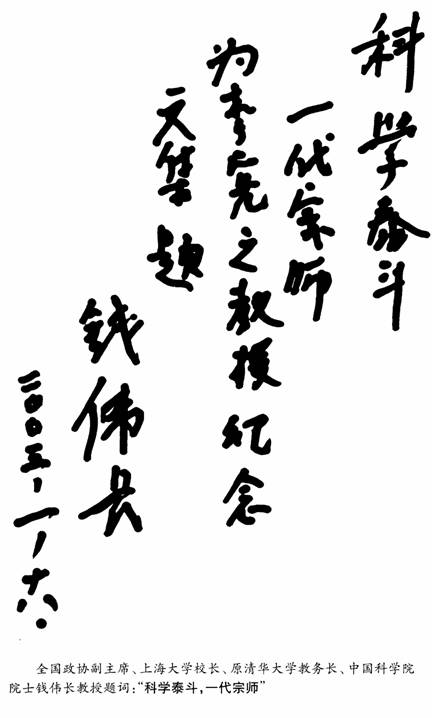 科学泰斗
一代宗师
为李宪之教授纪念
文集题
钱伟长
二〇〇三、一、十八.
全国政协副主席、上海大学校长、原清华大学教务长、中国科学院
院士钱伟长教授题词:“科学泰斗,一代宗师”